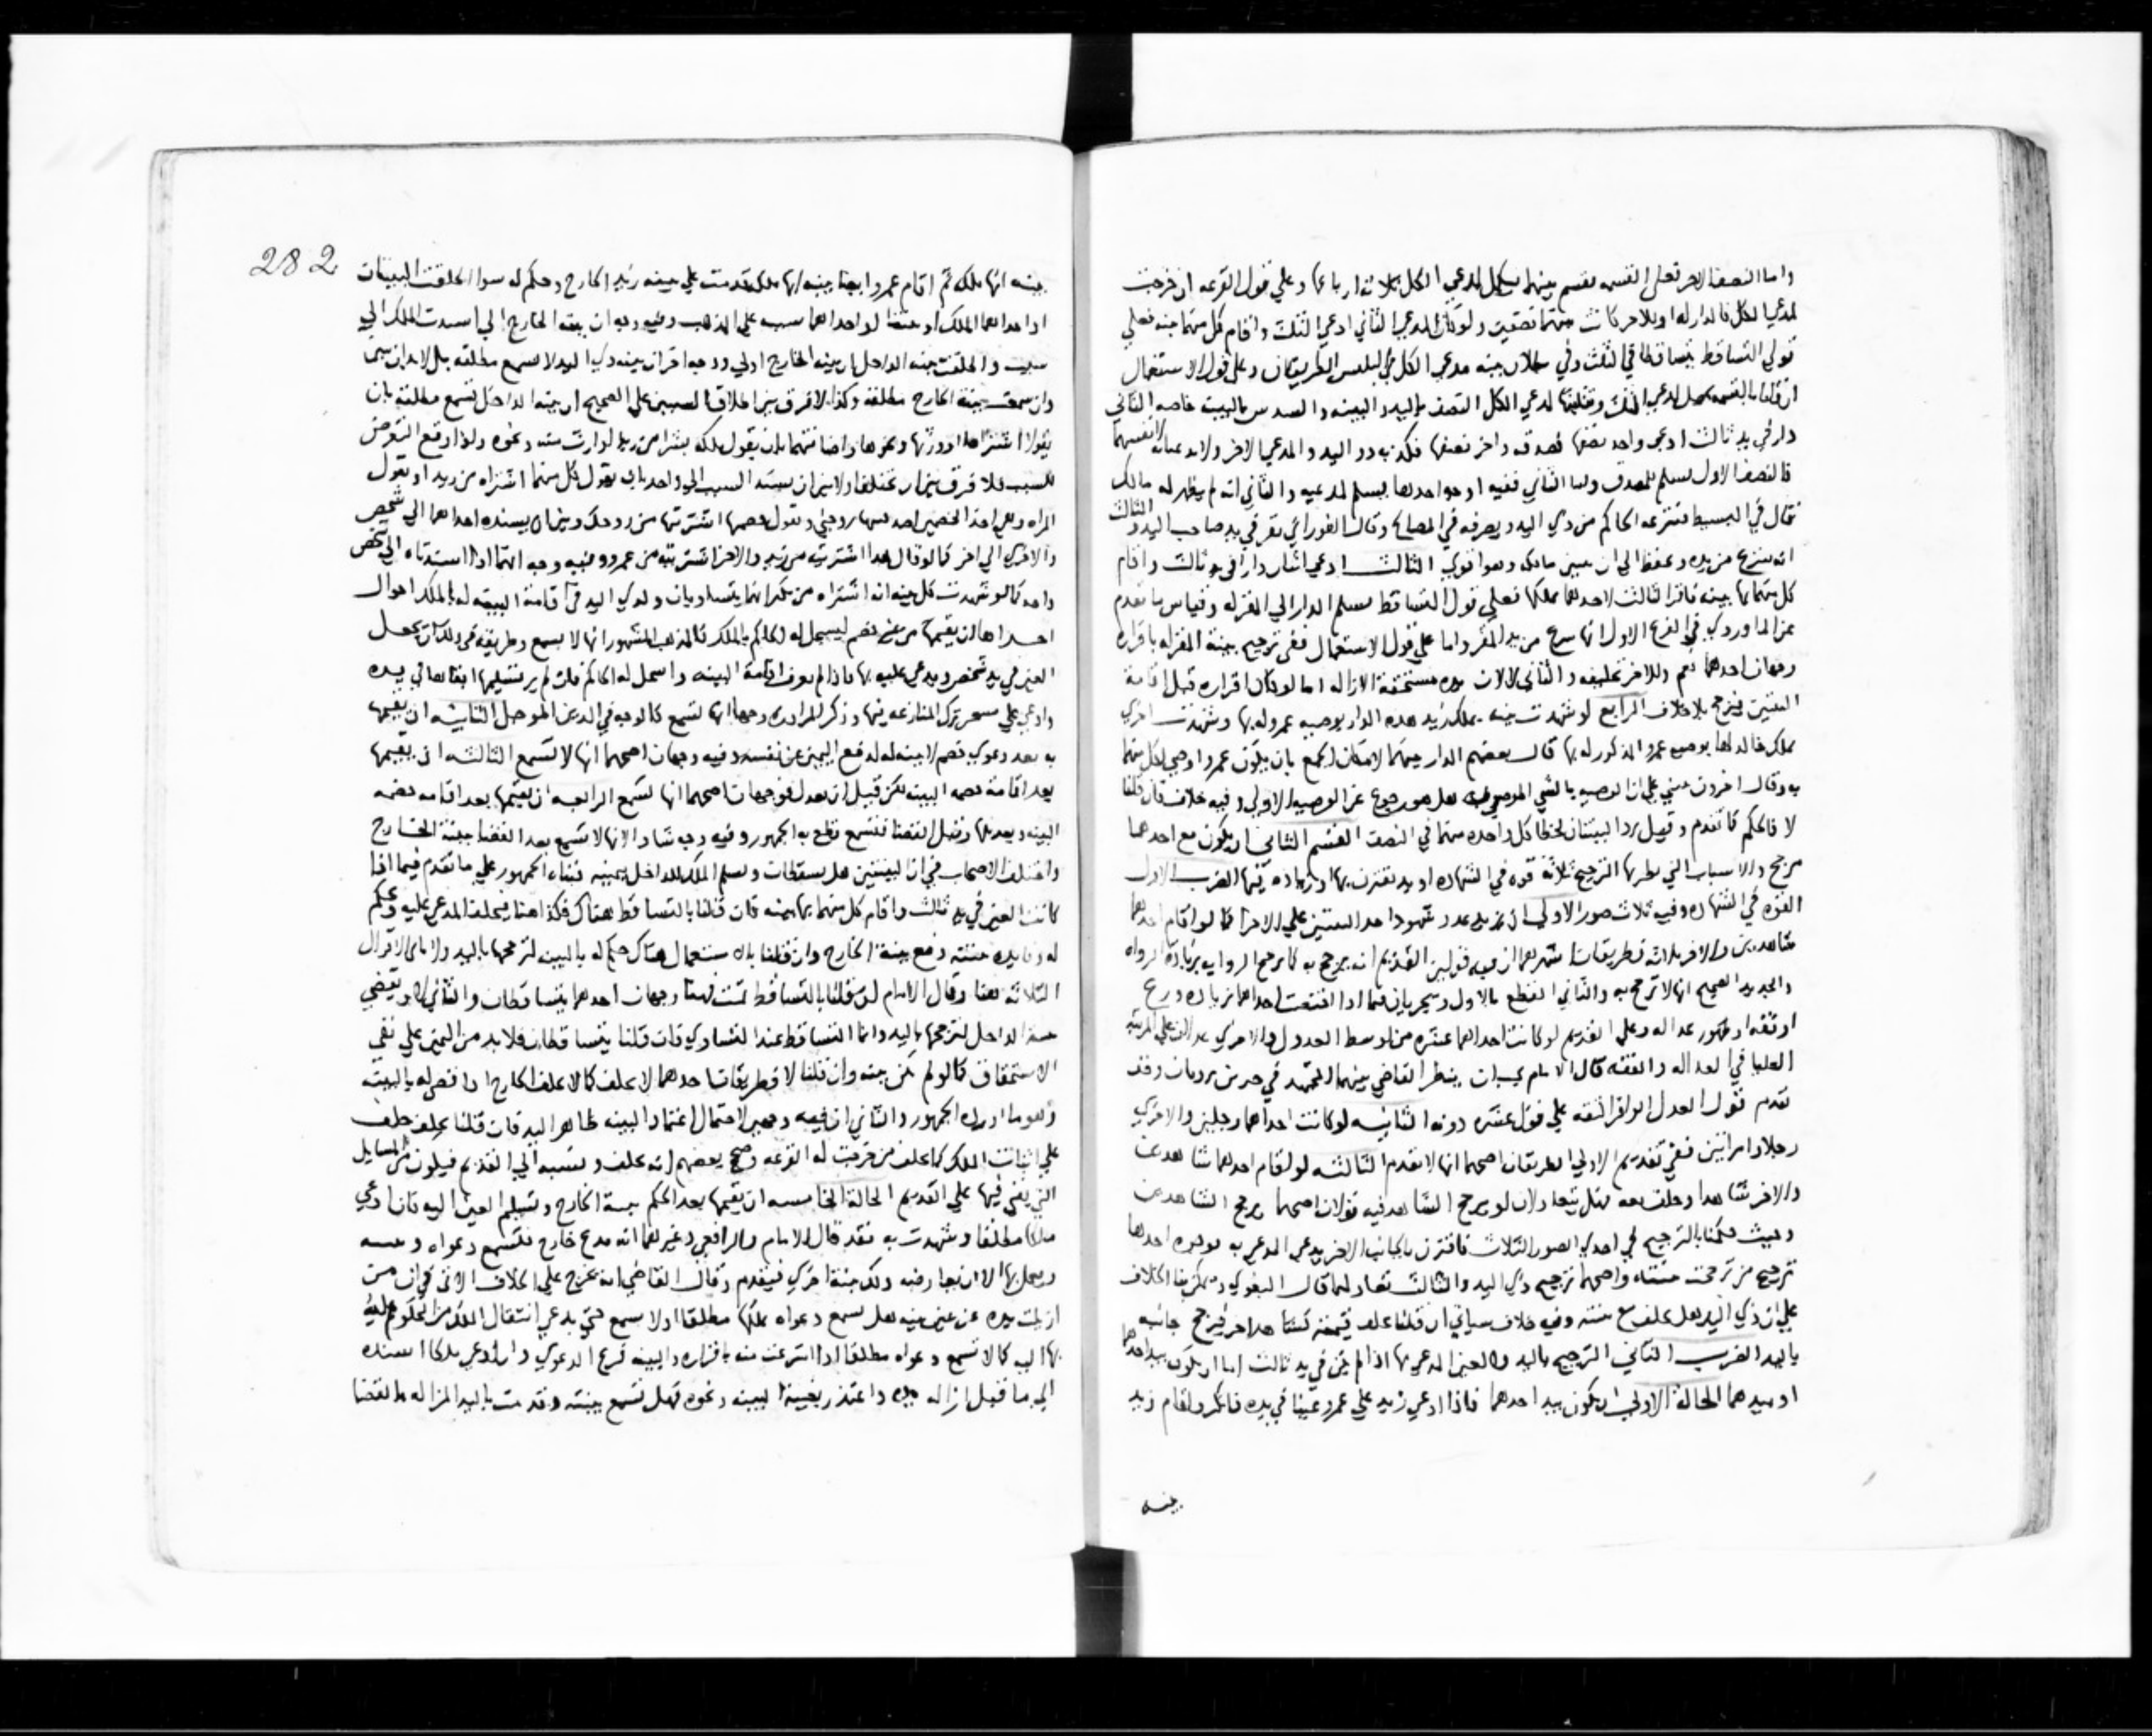 واما النصف الاخر فعلى القسمه يقسم بينهما فيكمل لمدعي الكل ثلاثة ارباعها وعلى قول القرعه ان خرجت
لمدعي الكل فالدار له او للاخر كانت بينهما نصفين ولو كان المدعي الثاني ادعي الثلث واقام كل منهما بينه فعلي
قولي التساقط يتساقطا في الثلث وفي بطلان بينه مدعي الكل في الثلثين الطريقان وعلى قول الاستعمال
ان قلنا بالقسمه لمدعي الكل النصف باليد والبينه والسدس بالبينه خاصه الثاني
دار في يد ثالث ادعي واحد نصفها فصدقه واخر نصفها فكذبه ذو اليد والمدعي الاخر ولا يدعيانه لانفسهما
فالنصف الاول يسلم للمصدق واما الثاني ففيه اوجه احدها يسلم لمدعيه والثاني انه لم يظهر له مالك
قال في البسيط فينتزعه الحاكم من ذي اليد ويصرفه في المصالح وقال الفوراني يقر في يد صاحب اليد والثالث
انه ينزع من يده ويحفظ الي ان يتبين مالكه وهو اقوي الثالث ادعي اثنان دارا في يد ثالث واقام
كل منهما بها بينه فاقر الثالث لاحدهما بملكها فعلي قول التساقط يسلم الدار الي المقر له وقياس ما تقدم
عن الماوردي في الفرع الاول انها تنزع من يد المقر واما على قول الاستعمال ففي ترجيح بينة المقر له باقراره
وجهان احدهما نعم وللاخر تحليفه والثاني لا لان يده مستحقة الازاله اما لو كان اقراره قبل اقامة
البينتين فيرجح بلا خلاف الرابع لو شهدت بينه بملك زيد هذه الدار بوصيه عمرو له بها وشهدت اخري
بملك خالد لها بوصيه عمرو المذكور له بها قال بعضهم الدار بينهما لامكان الجمع بان يكون عمرو اوصي لكل منهما
به وقال اخرون ينبني على ان الوصيه بالشي الموصي به هل هو رجوع عن الوصيه الاولي وفيه خلاف فان قلنا
لا فالحكم كما تقدم وقيل ترد البينتان لخطا كل واحده منهما في النصف القسم الثاني ان يكون مع احدهما
مرجح والاسباب التي يطرقها الترجيح ثلاثة قوه في الشهاده او يد تقترن بها او زياده فيها الضرب الاول
القوه في الشهاده وفيه ثلاث صور الاولي ان يزيد عدد شهود احد البينتين علي الاخر كما لو اقام احدهما
شاهدين والاخر ثلاثة فطريقان اشهرهما ان فيه قولين القديم انه يرجح به كما ترجح الروايه بزيادة الرواه
والجديد الصحيح انها لا ترجح به والثاني القطع بالاول ويجريان فيما اذا اختصت احداهما بزياده ورع
او ثقه او ظهور عداله وعلي القديم لو كانت احداهما عشره من اوسط العدول والاخري عدلان علي المرتبه
العليا في العداله والفقه قال الامام ينظر القاضي بينهما المجتهد في حديثين يرويان وقد
تقدم قول العدل الواقر الثقه علي قول عشره دونه الثانيه لو كانت احداهما رجلين والاخري
رجلا وامراتين ففي تقديم الاولي الطريقان اصحهما انها لا تقدم الثالثه لو اقام احدهما شاهدين
والاخر شاهدا وحلف معه فهل يتعادلان او يرجح الشاهد فيه قولان اصحهما يرجح الشاهدين
وحيث حكمنا بالترجيح في احدي الصور الثلاث فاقترن بالجانب الاخر يد على المدعي به فوجوه احدها
ترجيح من ترجحت بينته واصحها ترجيح ذي اليد والثالث تعادلهما قال البغوي ويمكن بنا الخلاف
علي ان ذي اليد هل يحلف مع بينته وفيه خلاف سياتي ان قلنا يحلف فيمينه كشاهد اخر فيرجح جانبه
باليد الضرب الثاني الترجيح باليد والعين المدعي بها اذا لم يكن في يد ثالث اما ان يكون بيد احدهما
او بيدهما الحالة الاولي ان يكون بيد احدهما فاذا ادعي زيد علي عمرو عينا في يده فانكر واقام زيد
بينه
282
بينه انها ملكه ثم اقام عمرو ايضا بينه انها ملكه قدمت علي بينه زيد الخارج وحكم له سوا اطلقت البينات
او احداهما الملك او بينتا او احداهما سببه علي المذهب وفيه وجه ان بينه الخارج الي اسندت الملك الي
سبب واطلقت بينه الداخل ان بينه الخارج اولي ووجه اخر ان بينه ذي اليد لا تسمع مطلقه بل لا بد ان تبين
وان سمعت بينة الخارج مطلقه وكذا لا فرق بين اطلاق السببين علي الصحيح ان بينه الداخل تسمع مطلقه بان
يقولا اشتراها او ورثها ونحوهما واضافتهما بان يقول ملكه بشرا من زيد او ارث منه ونحوه واذا وقع التعرض
للسبب فلا فرق بين ان يختلفا ولا بين ان يسند السبب الي واحد بان يقول كل منهما اشتراه من زيد او تقول
المراه وهي احد الخصمين اصدقنيها زوجي ويقول خصمها اشتريتها من زوجك وبين ان يسنده احداهما الي شخص
والاخري الي اخر كما لو قال هذا اشتريته من زيد والاخر اشتريته من عمرو وفيه وجه انهما اذا اسندتاه الي شخص
واحد كما لو شهدت كل بينه انه اشتراه من بكر انهما يتساويان ولذي اليد في اقامة البينه له بالملك احوال
احداها ان يقيمها من غير خصم ليسجل له الحاكم بالملك فالمذهب المشهور انها لا تسمع وطريقه في ذلك ان يجعل
العين في يد شخص ويدعي عليه بها فاذا لم يعرف اقامة البينه واسجل له الحاكم فان لم ير تسليمها ابقاها في يده
وادعي على ترك المنازعه فيها وذكر المراوده وجها انها تسمع كالوجه في الدين الموجل الثانيه ان يقيمها
به بعد دعوي خصم لا بينه له لدفع اليمين عن نفسه وفيه وجهان اصحهما انها لا تسمع الثالثه ان يقيمها
بعد اقامة خصمه البينه لكن قبل ان تعدل فوجهان اصحهما انها تسمع الرابعه ان يقيمها بعد اقامه خصمه
البينه وتعديلها وقبل القضا فتسمع قطع به الجمهور وفيه وجه شاذ انها لا تسمع بعد القضا ببينة الخارج
واختلف الاصحاب في ان البينتين هل يسقطان ويسلم الملك للداخل بيمينه فبناه الجمهور علي ما تقدم فيما اذا
كانت العين في يد ثالث واقام كل منهما بها بينه فان قلنا بالتساقط هناك فكذا هنا فيحلف المدعي عليه ويحكم
له وفايده بينته دفع بينة الخارج وان قلنا بالاستعمال هناك حكم له بالبينه لترجحها باليد ولا ياتي الاقوال
الثلاثة هنا وقال الامام ان قلنا بالتساقط ثمت فهنا وجهان احدهما يتساقطان والثاني لا ويقضي
ببينة الداخل لترجحها باليد وانما التساقط عند التساوي فان قلنا يتساقطان فلا بد من اليمين علي نفي
الاستحقاق كما لو لم تكن بينه وان قلنا لا فطريقان احدهما لا يحلف كما لا يحلف الخارج اذا قضي له بالبينه
وهو ما اورده الجمهور والثاني ان فيه وجهين لاحتمال اعتماد البينه ظاهر اليد فان قلنا يحلف حلف
علي اثبات الملك كما يحلف من خرجت له القرعه وصحح بعضهم انه يحلف ونسبه الي القديم فيكون من المسايل
التي يفتي فيها علي القديم الحالة الخامسه ان يقيمها بعد الحكم ببينة الخارج وتسليم العين اليه فان ادعي
ملكا مطلقا وشهدت به فقد قال الامام والرافعي وغيرهما انه مدع خارج فتسمع دعواه وبينته
ويعمل بها الا ان يعارضه ذلك بينة اخري فيقدم وقال القاضي انه يخرج علي الخلاف الاتي في ان من
ازيلت يده عن عين ببينه هل تسمع دعواه بملكها مطلقا او لا تسمع حتى يدعي انتقال الملك من المحكوم عليه
بها اليه كما لا تسمع دعواه مطلقا اذا انتزعت منه باقراره والبينه فرع الدعوي وان ادعي ملكا اسنده
الي ما قبل ازاله يده واعتذر بغيبة البينه ونحوه فهل تسمع بينته وقدمت باليد المزاله بالقضا